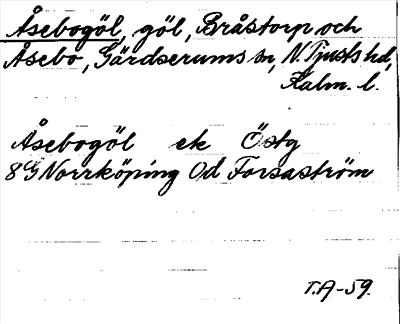 Åsebogöl, göl, Bråstorp och
Åsebo, Gärdserums sn, N. Tjusts hd,
Kalm. l.
Åsebogöl ek Östg
8G Norrköping Od Forsaström
T.A-59.